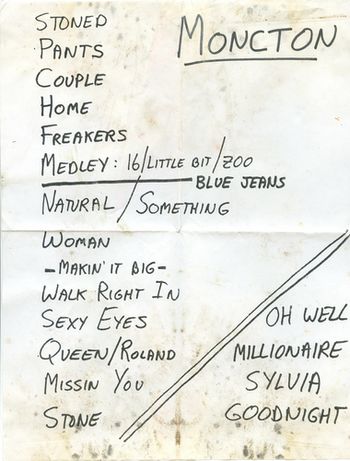 MONCTON
STONED
PANTS
COUPLE
HOME
FREAKERS
MEDLEY: 16/LITTLE BIT/ZOO
BLUE JEANS
NATURAL/SOMETHING
WOMAN
-MAKIN' IT BIG-
WALK RIGHT IN
SEXY EYES
QUEEN/ROLAND
MISSIN YOU
STONE
OH WELL
MILLIONAIRE
SYLVIA
GOODNIGHT